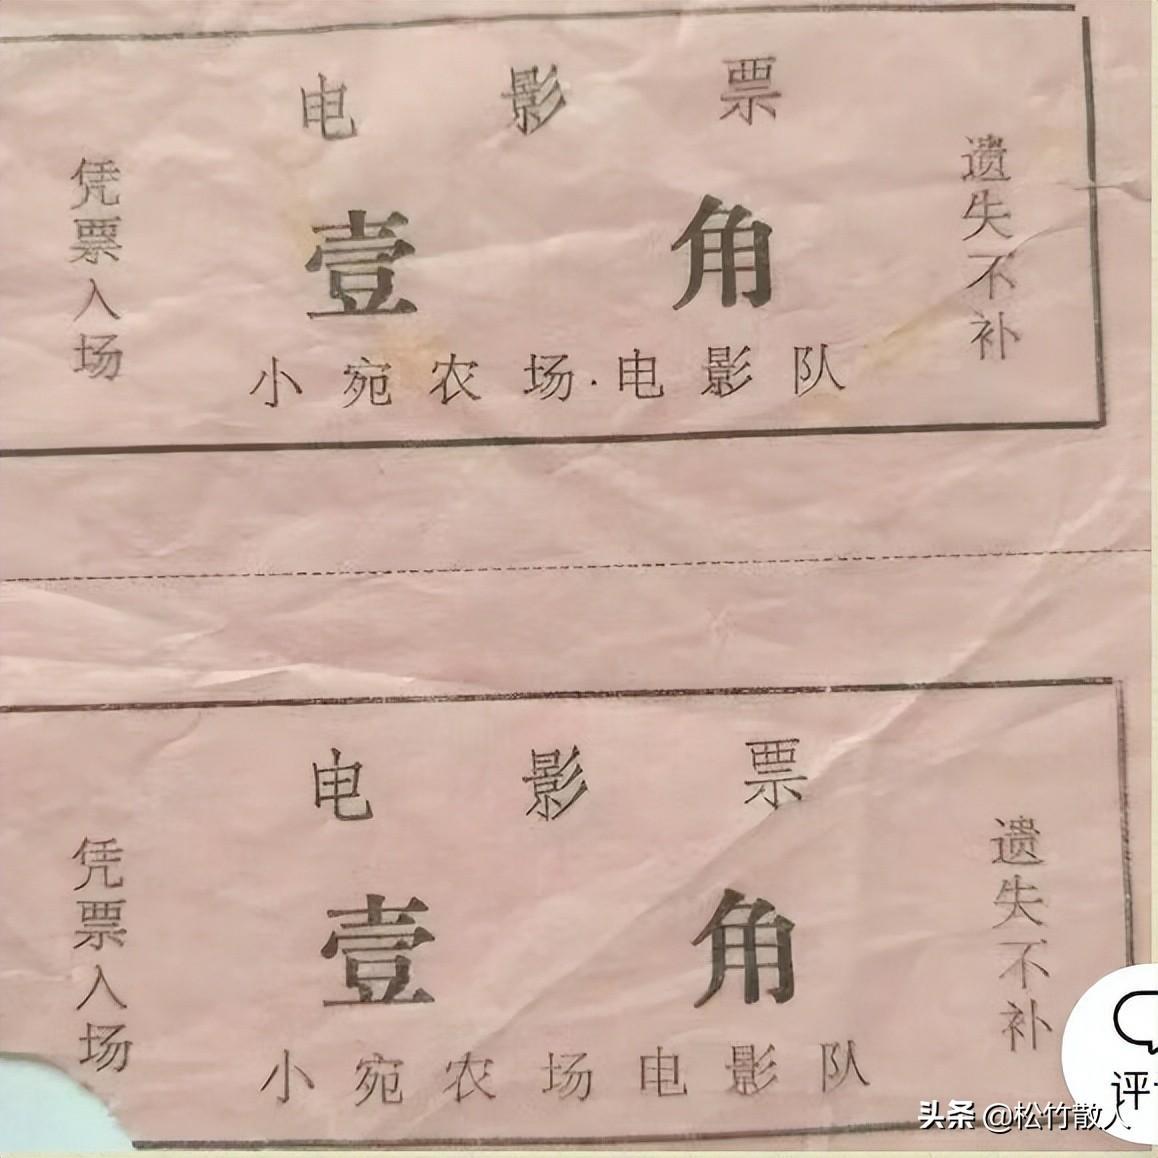 电影票
凭票入场
壹角
遗失不补
小宛农场·电影队
电影票
凭票入场
壹角
遗失不补
小宛农场电影队
评
头条 @松竹散人